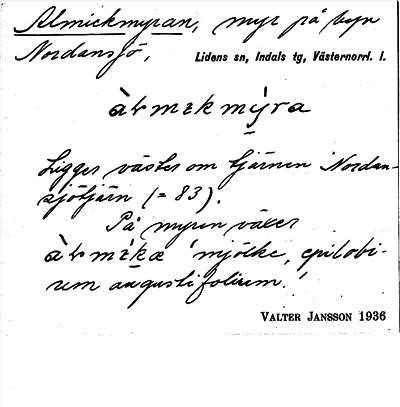 Almickmyran, myr på byn
Nordansjö, Lidens sn, Indals tg, Västernorrl. l.
àlmıkmýra
Ligger väster om tjärnen Nordan-
sjötjärn (= 83).
På myren växer
àlmı̀kæ 'mjölke, epilobi-
um angustifolium.'
VALTER JANSSON 1936